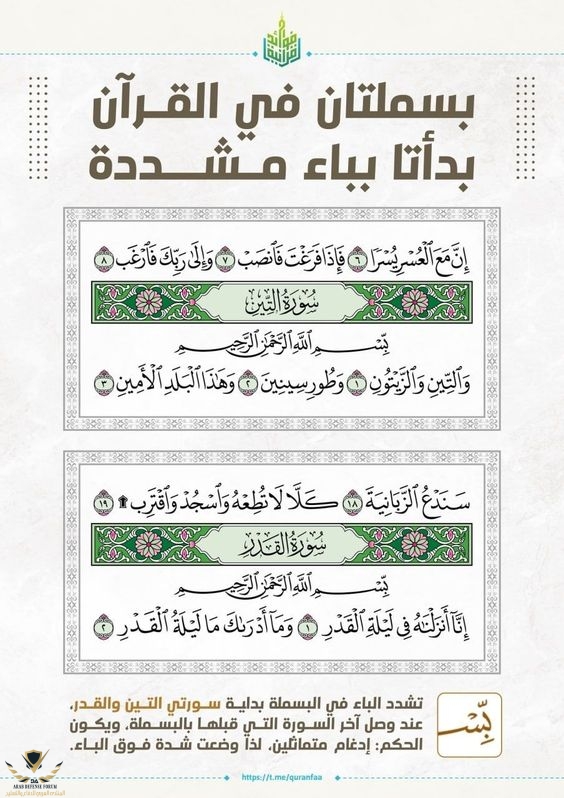 فوائد قرآنية
بسملتان في القرآن
بدأتا بباء مشددة
إِنَّ مَعَ ٱلْعُسْرِ يُسْرًا ٦ فَإِذَا فَرَغْتَ فَٱنصَبْ ٧ وَإِلَىٰ رَبِّكَ فَٱرْغَب ٨
سُورَةُ التِّينِ
بِّسْمِ ٱللَّهِ ٱلرَّحْمَٰنِ ٱلرَّحِيمِ
وَٱلتِّينِ وَٱلزَّيْتُونِ ١ وَطُورِ سِينِينَ ٢ وَهَٰذَا ٱلْبَلَدِ ٱلْأَمِينِ ٣
سَنَدْعُ ٱلزَّبَانِيَةَ ١٨ كَلَّا لَا تُطِعْهُ وَٱسْجُدْ وَٱقْتَرِب ۩ ١٩
سُورَةُ القَدْرِ
بِّسْمِ ٱللَّهِ ٱلرَّحْمَٰنِ ٱلرَّحِيمِ
إِنَّآ أَنزَلْنَٰهُ فِى لَيْلَةِ ٱلْقَدْرِ ١ وَمَآ أَدْرَىٰكَ مَا لَيْلَةُ ٱلْقَدْرِ ٢
بِّسْ
تشدد الباء في البسملة بداية سورتي التين والقدر،
عند وصل آخر السورة التي قبلها بالبسملة، ويكون
الحكم: إدغام متماثلين، لذا وضعت شدة فوق الباء.
https://t.me/quranfaa
DA
ARAB DEFENSE FORUM